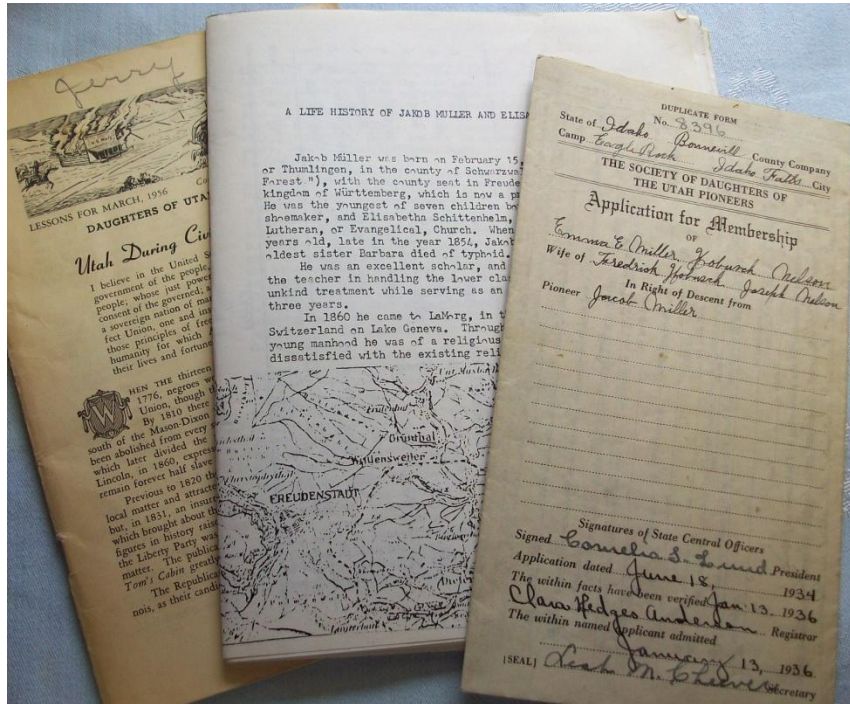 Jerry
LESSONS FOR MARCH, 1956
Co
DAUGHTERS OF UTA
Utah During Civ
I believe in the United S
government of the people,
people, whose just power
consent of the governed; a
a sovereign nation of ma
fect Union, one and ins
those principles of free
humanity for which A
their lives and fortune
WHEN THE thirteen
1776, negroes w
Union, though th
By 1810 there
south of the Mason-Dixon
been abolished from every
which later divided the
Lincoln, in 1860, express
remain forever half slave
Previous to 1820 the
local matter and attract
but, in 1831, an insurre
which brought about the
figures in history raise
the Liberty Party was
matter. The publica
Tom's Cabin greatly
The Republica
nois, as their candi
A LIFE HISTORY OF JAKOB MULLER AND ELISA
Jakob Müller was born on February 15,
or Thumlingen, in the county of Schwarzwal
Forest"), with the county seat in Freude
kingdom of Württemberg, which is now a p
He was the youngest of seven children bo
shoemaker, and Elisabetha Schittenhelm,
Lutheran, or Evangelical, Church. When
years old, late in the year 1854, Jakob
oldest sister Barbara died of typhoid.
He was an excellent scholar, and
the teacher in handling the lower clas
unkind treatment while serving as an
three years.
In 1860 he came to LaMorg, in t
Switzerland on Lake Geneva. Through
young manhood he was of a religious
dissatisfied with the existing reli
Grünthal
Wittensweiler
FREUDENSTADT
DUPLICATE FORM
No. 8396
State of Idaho Bonnevill County Company
Camp Eagle Rock Idaho Falls City
THE SOCIETY OF DAUGHTERS OF
THE UTAH PIONEERS
Application for Membership
OF
Emma E. Miller Grobusch Nelson
Wife of Feredrick Grobusch Joseph Nelson
In Right of Descent from
Pioneer Jacob Miller
Signatures of State Central Officers
Signed Cornelia S. Lund President
Application dated June 18, 1934
The within facts have been verified Jan. 13. 1936
Clara Hedges Anderson Registrar
The within named applicant admitted
January 13, 1936
[SEAL] Leah M. Cheever Secretary